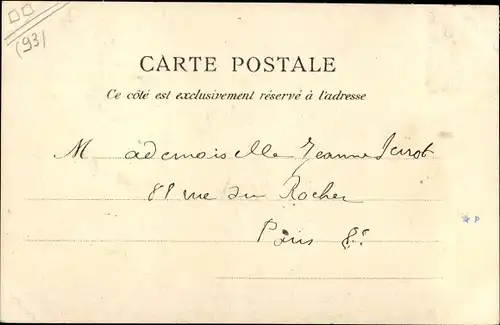 (93)
CARTE POSTALE
Ce côté est exclusivement réservé à l'adresse
Mademoiselle Jeanne
81 rue du Rocher
Paris 8e